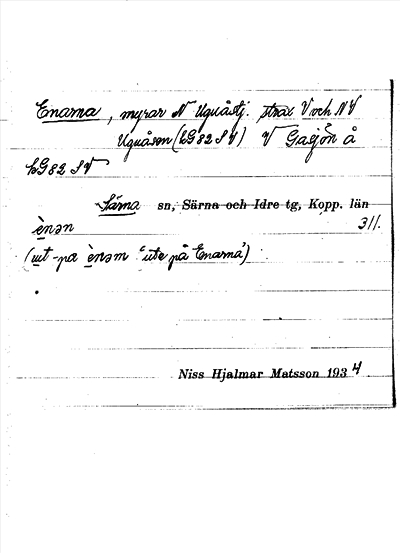 Enarna, myrar N Uguåstj. strax V och NV
Uguåsen (LG82 SV) V Gasjön å
LG82 SV
Särna sn, Särna och Idre tg, Kopp. län
ènən 311.
(ut-pa ènəm "ute på Enarna")
Niss Hjalmar Matsson 1934